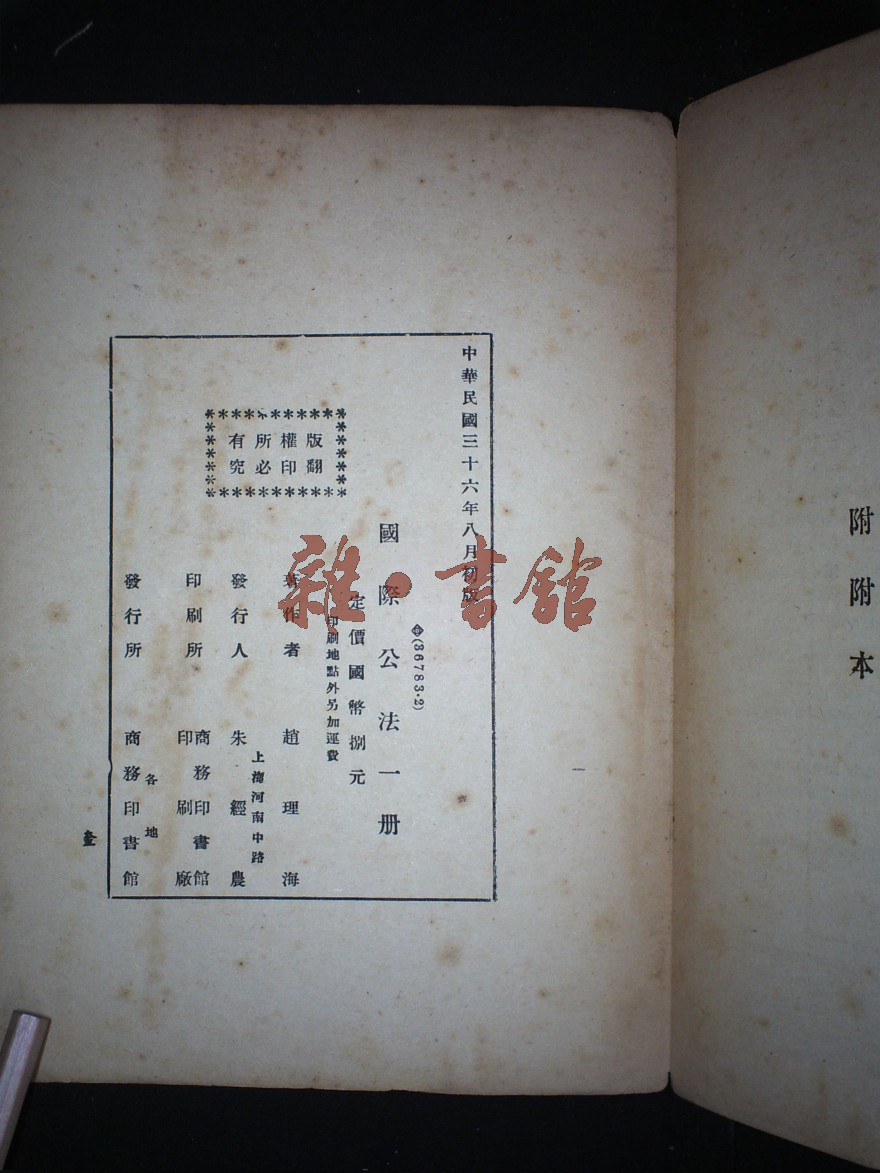 附附本
中華民國三十六年八月初版
(36783·2)
國際公法一册
定價國幣捌元
印刷地點外另加運費
版權所有
翻印必究
著作者 趙理海
發行人 朱經農
上海河南中路
印刷所 商務印書館
印刷廠
發行所 商務印書館
各地
雜·書館